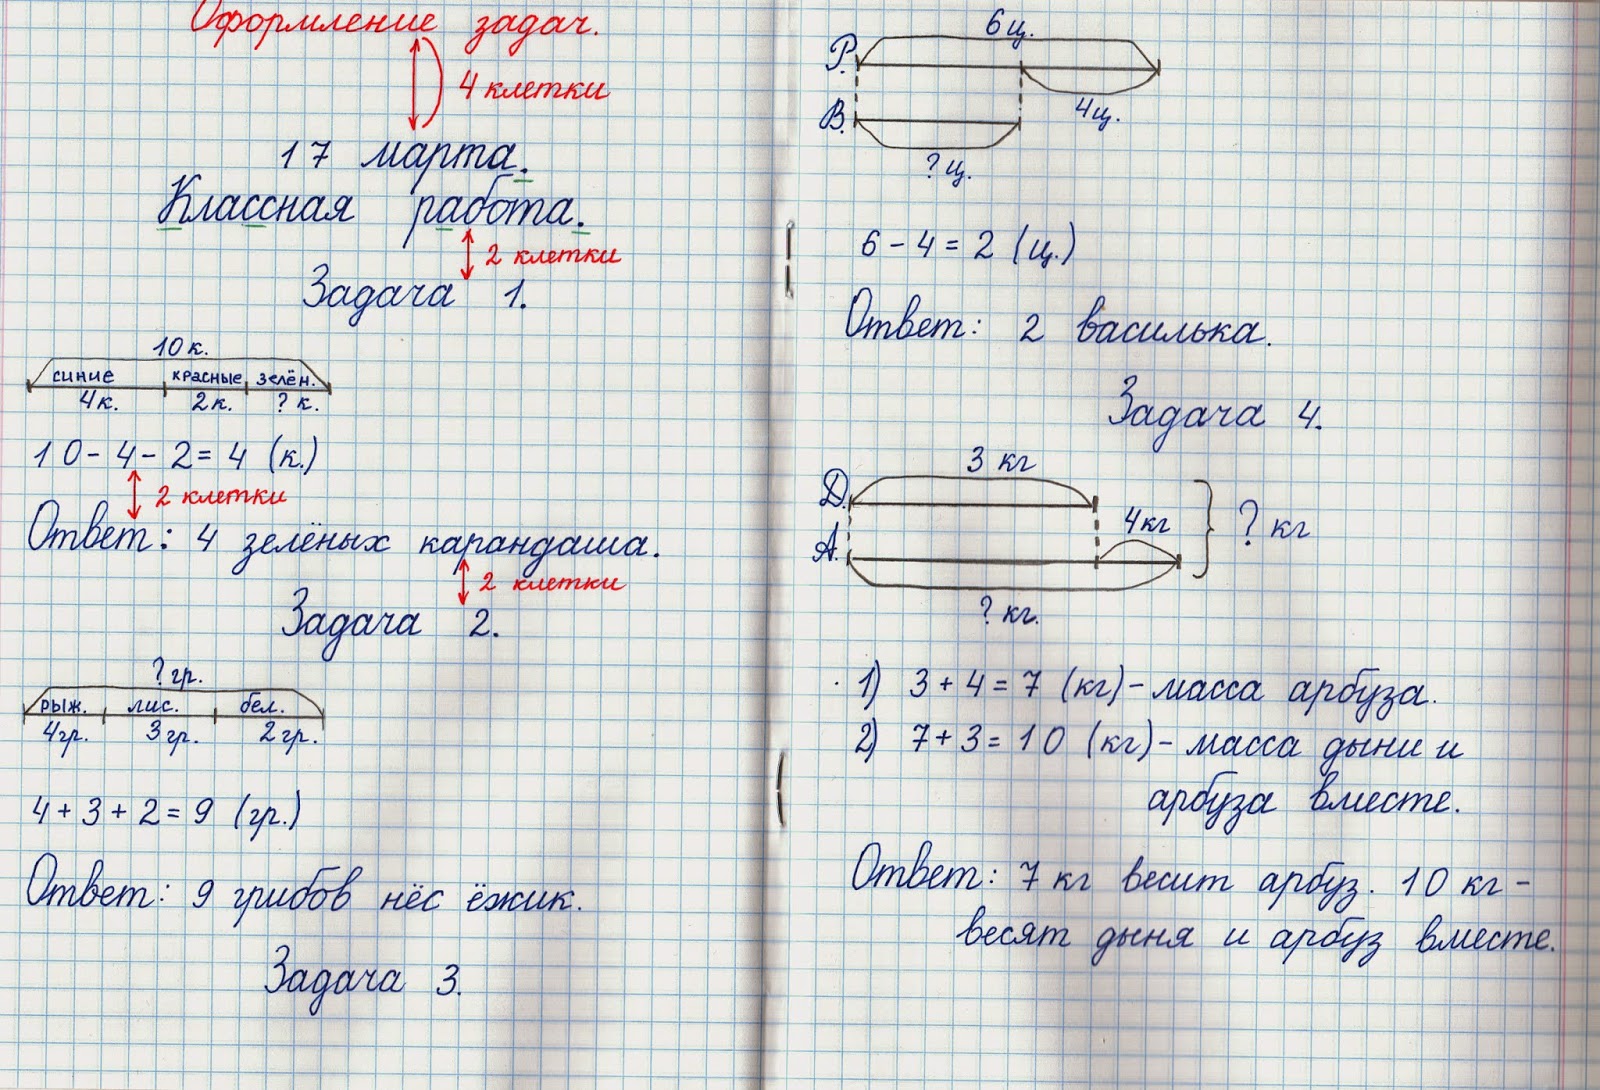 Оформление задач.
4 клетки
17 марта.
Классная работа.
2 клетки
Задача 1.
10 к.
синие красные зелён.
4 к. 2 к. ? к.
10 - 4 - 2 = 4 (к.)
2 клетки
Ответ: 4 зелёных карандаша.
2 клетки
Задача 2.
? гр.
рыж. лис. бел.
4 гр. 3 гр. 2 гр.
4 + 3 + 2 = 9 (гр.)
Ответ: 9 грибов нёс ёжик.
Задача 3.
6 ц.
Р.
4 ц.
В.
? ц.
6 - 4 = 2 (ц.)
Ответ: 2 василька.
Задача 4.
3 кг
Д.
4 кг
? кг
А.
? кг.
1) 3 + 4 = 7 (кг) - масса арбуза.
2) 7 + 3 = 10 (кг) - масса дыни и
арбуза вместе.
Ответ: 7 кг весит арбуз. 10 кг -
весят дыня и арбуз вместе.